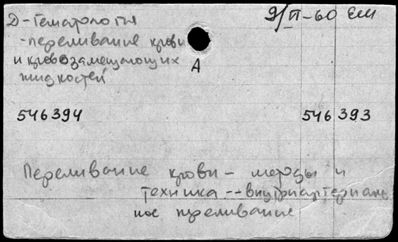 Д-Гематология
9/II-60 ЕМ
-переливание крови
и кровозамещающих
жидкостей
А
546394
546393
Переливание крови - методы и
техника -- внутриартериаль
ное преливание